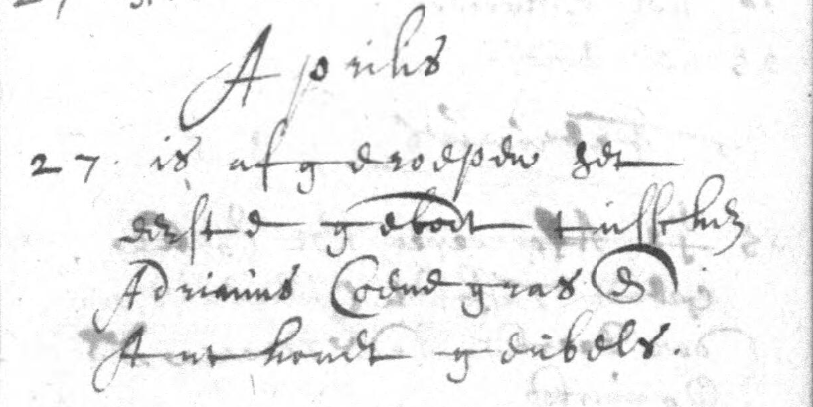 Aprilis
27. is afgeroepen het
eerste gebodt tusschen
Adrianus Coenegras &
Anthonet geubels.